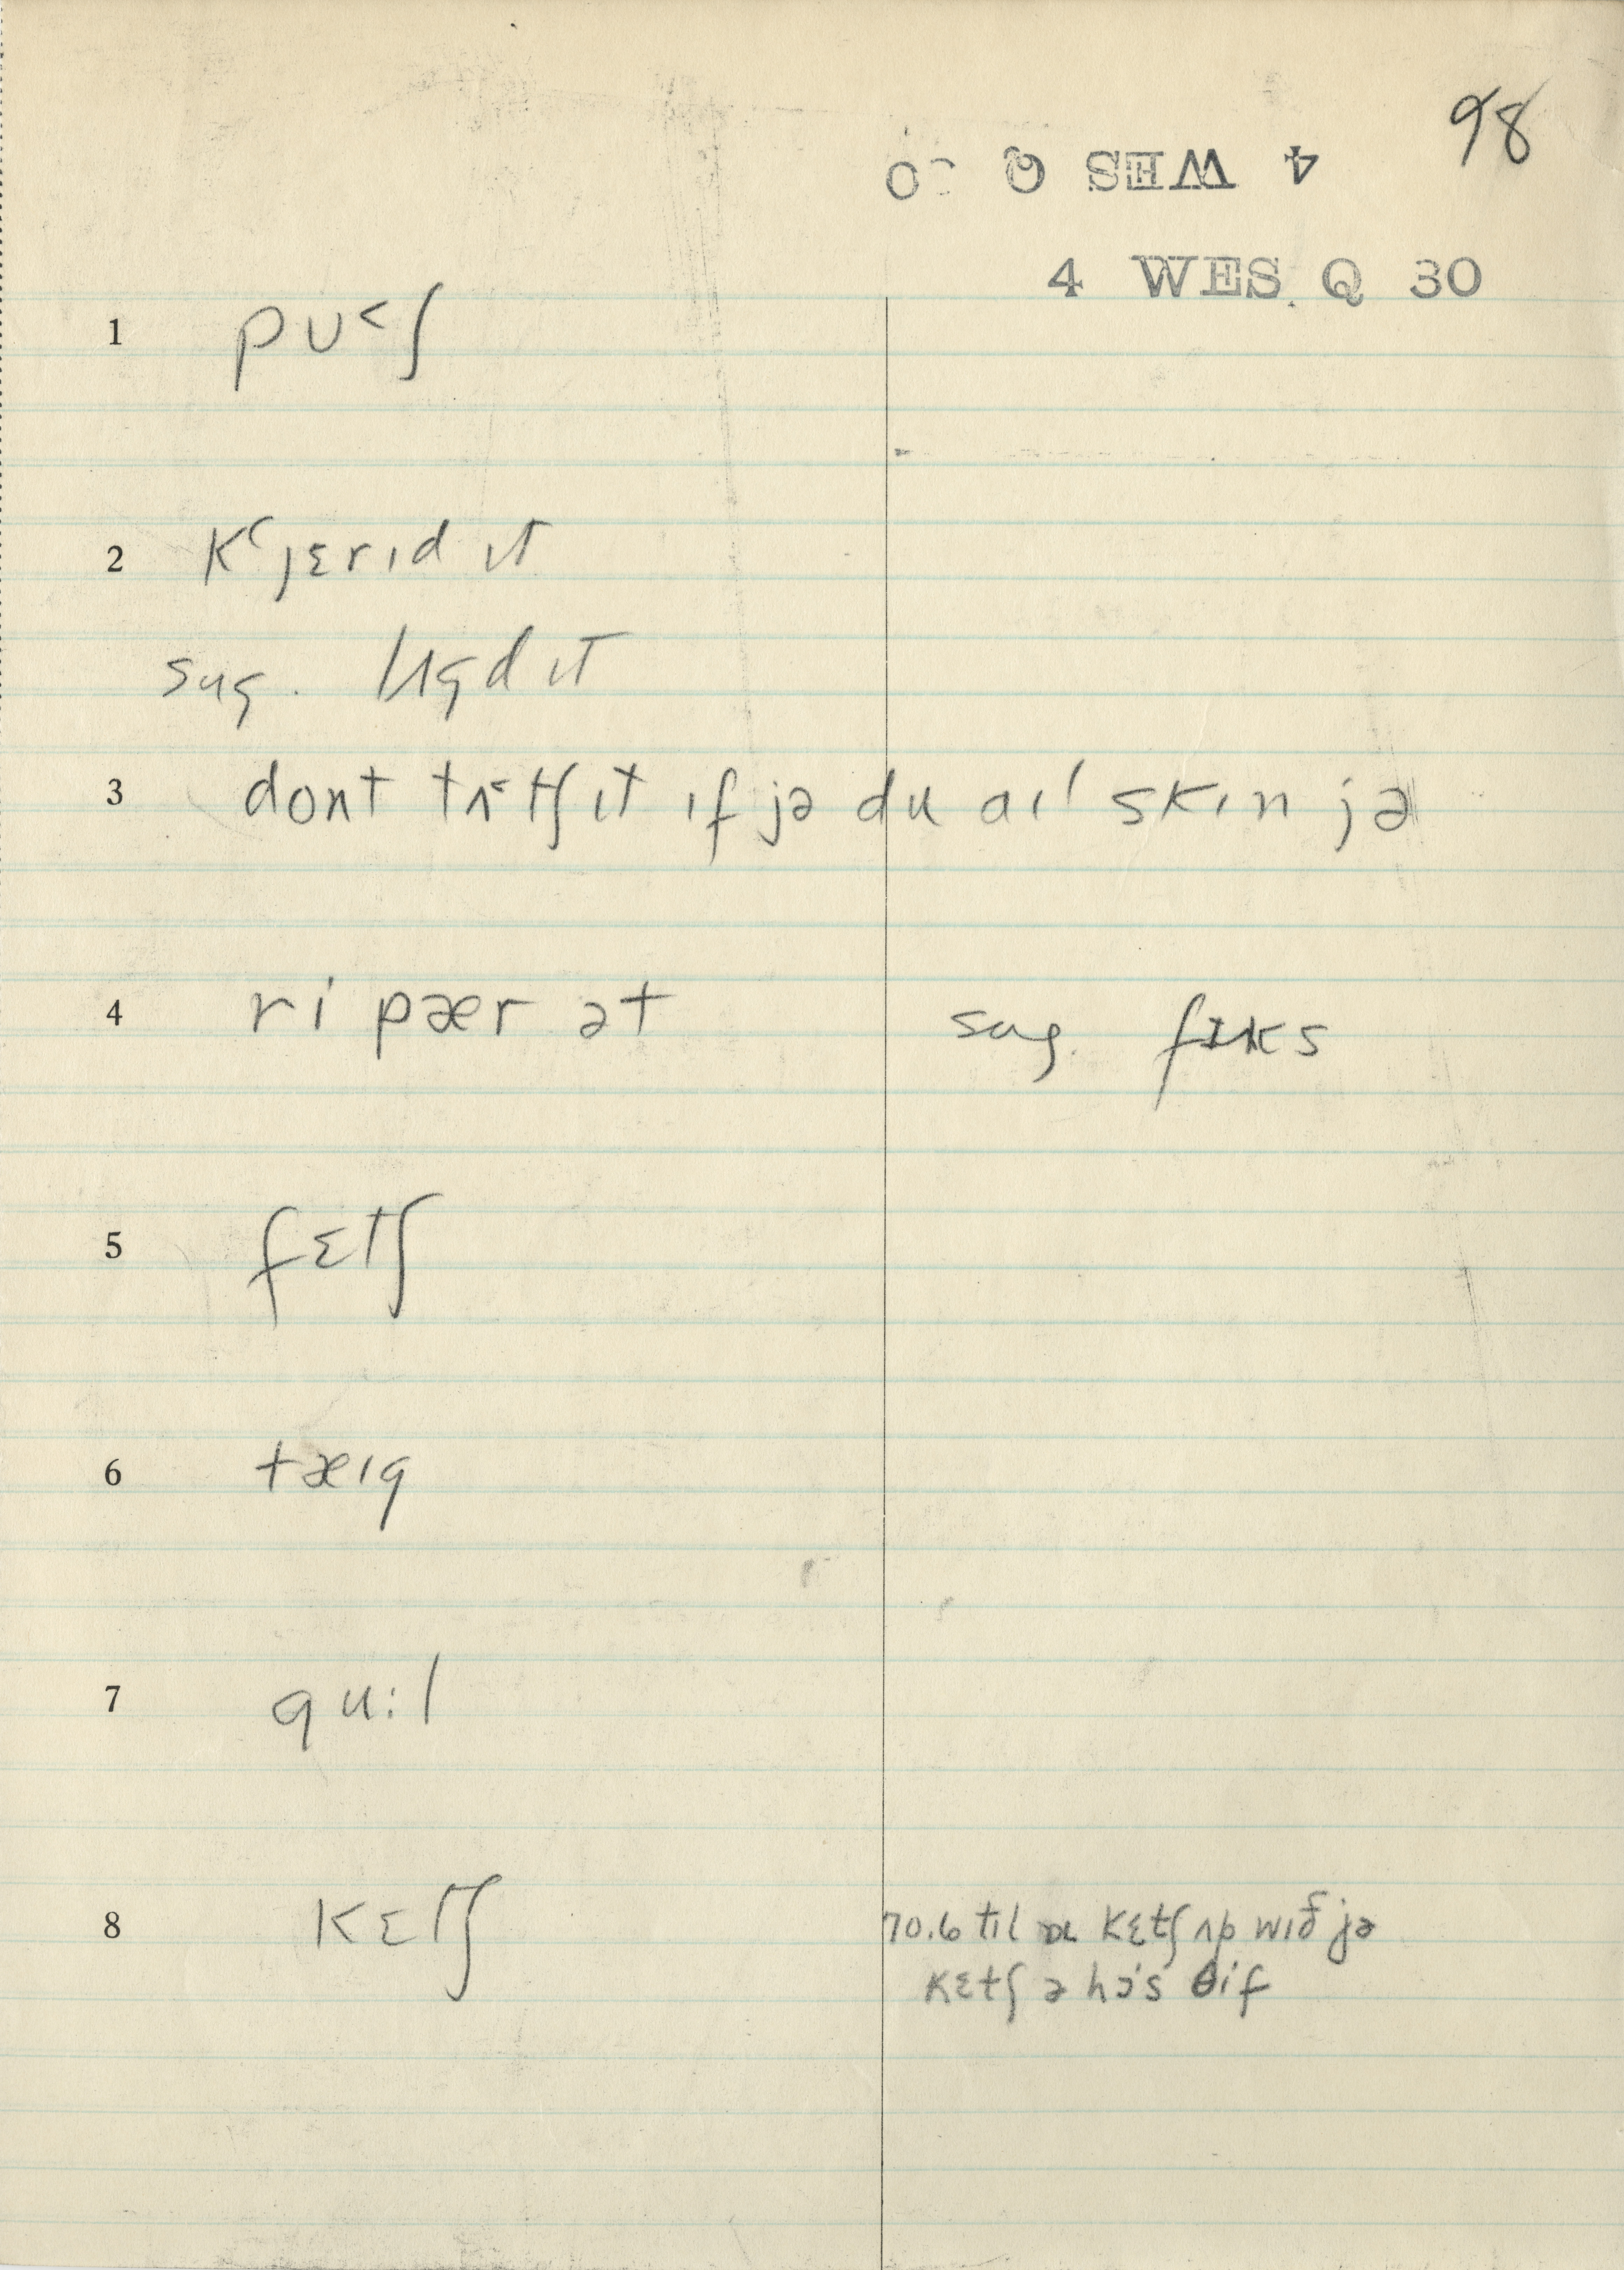 98
4 WES Q 30
4 WES. Q 30
1 pu˂ʃ
2 kʻjɛrɪd ɪt
sug. lʌgd ɪt
3 dont tʌ˂tʃ ɪt ɪf jə du aɪl skɪn jə
4 ri pær ət sug. fɪks
5 fɛtʃ
6 tæɪg
7 gu:l
8 kɛtʃ 70.6 tɪl aɪ kɛtʃ ʌp wɪð jə
kɛtʃ ə hɔ's θif